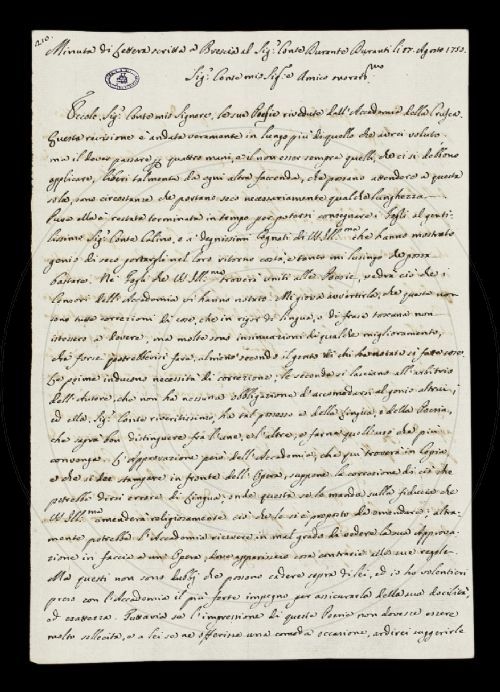 210.
Minuta di Lettera scritta a Brescia al Sig.r Conte Durante Duranti li 17. Agosto 1750.
Sig.r Conte mio Sig.re e Amico
Eccole, Sig.r Conte mio Signore, le sue Poesie rivedute dall'Accademia della Crusca.
Questa revisione è andata veramente in lungo più di quello che avrei voluto
ma il dover passare p quattro mani, e il non esser sempre quelli, che ci si debbono
applicare, liberi talmente da ogni altra faccenda, che possano attendere a questa
sola, sono circostanze che portano seco necessariamente qualche lunghezza.
Pure ella è restata terminata in tempo per potersi consegnare i Fogli al genti-
lissimo Sig.r Conte Calino, e a' degnissimi Cognati di V.S. Ill.ma che hanno mostrato
genio di seco portargli nel loro ritorno costà, e tanto mi lusingo che possa
bastare. Ne' Fogli che V.S. Ill.ma troverà uniti alle Poesie, vedrà ciò che i
Censori dell'Accademia vi hanno notato. Mi giova avvertirla, che queste non
sono tutte correzioni di cose, che in rigor di lingua, e di frase toscana non
istessero a dovere, ma molte sono insinuazioni di qualche miglioramento,
che forse potrebbevisi fare, almeno secondo il gusto di chi ha notate sì fatte cose.
Le prime inducono necessità di correzione; le seconde si lasciano all'arbitrio
dell'Autore, che non ha nessuna obbligazione d'accomodarsi al genio altrui;
ed ella, Sig.r Conte riveritissimo, ha tal possesso e della Lingua, e della Poesia,
che saprà ben distinguere fra l'une, e l'altre, e farne quell'uso che più
convenga. L'approvazione però dell'Accademia, che pur troverà in Copia
e che si dee stampare in fronte dell'Opera, suppone la correzione di ciò che
potrebbe dirsi errore di Lingua, onde questa se le manda sulla fiducia che
V.S. Ill.ma emenderà religiosamente ciò che le si è proposto da emendare; altra-
mente potrebbe l'Accademia ricevere in mal grado di vedere la sua Approva-
zione in faccia a una Opera, dove apparissero cose contrarie alle sue regole.
Ma questi non sono dubbj che possano cadere sopra di lei, ed io ho volentieri
preso con l'Accademia il più forte impegno per assicurarla della sua docilità,
ed esattezza. Tuttavia se l'impressione di queste Poesie non dovesse essere
molto sollecita, e a lei se ne offerisse una comoda occasione, ardirei suggerirle